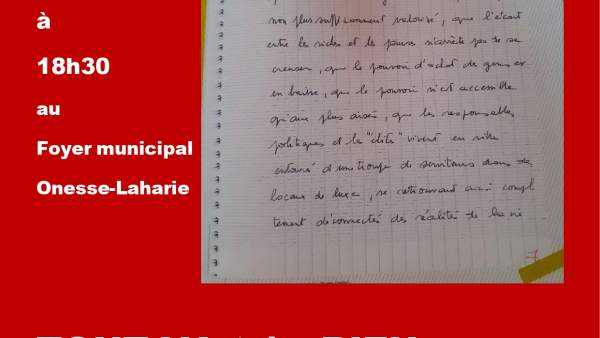 à
18h30
au
Foyer municipal
Onesse-Laharie
non plus suffisamment valorisé, que l'écart
entre les riches et les pauvres n'arrête pas de se
creuser, que le pouvoir d'achat de gens est
en baisse, que le pouvoir n'est accessible
qu'aux plus aisés, que les responsables
politiques et la "élite" vivent en ville
entouré d'une troupe de serviteurs dans des
locaux de luxe, se retrouvant ainsi compl
tement déconnectés des réalités de la vie
7